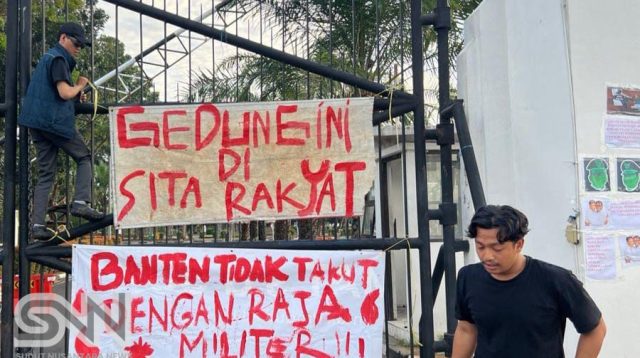 GEDUNG INI
DI
SITA RAKYAT
BANTEN TIDAK TAKUT
DENGAN RAJA
MILITER!!!
SNN
SUDUT NUSANTARA NEWS